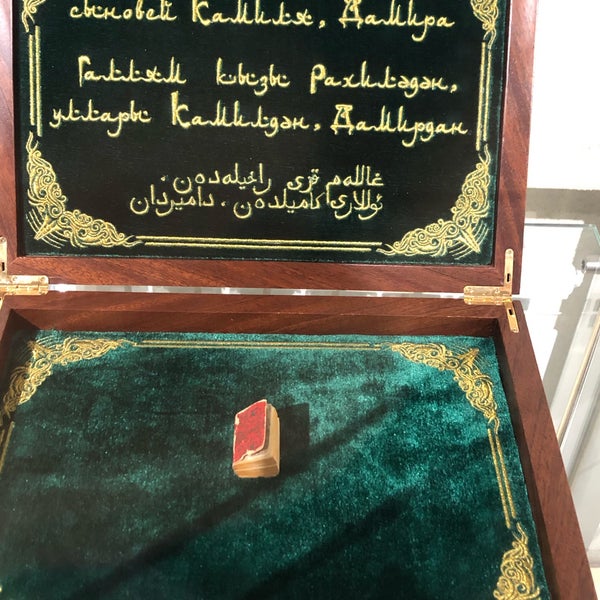 сыновей Камиля, Дамира
Галлям кызы Рахиләдән,
уллары Камилдән, Дамирдан
غاللەم قزی راخیلەدەن،
ئوللاری كامیلدەن، دامیردان